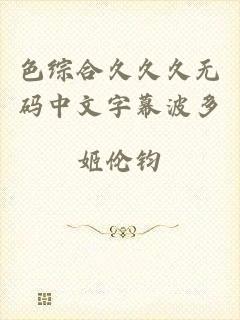 色综合久久久无
码中文字幕波多
姬伦钧